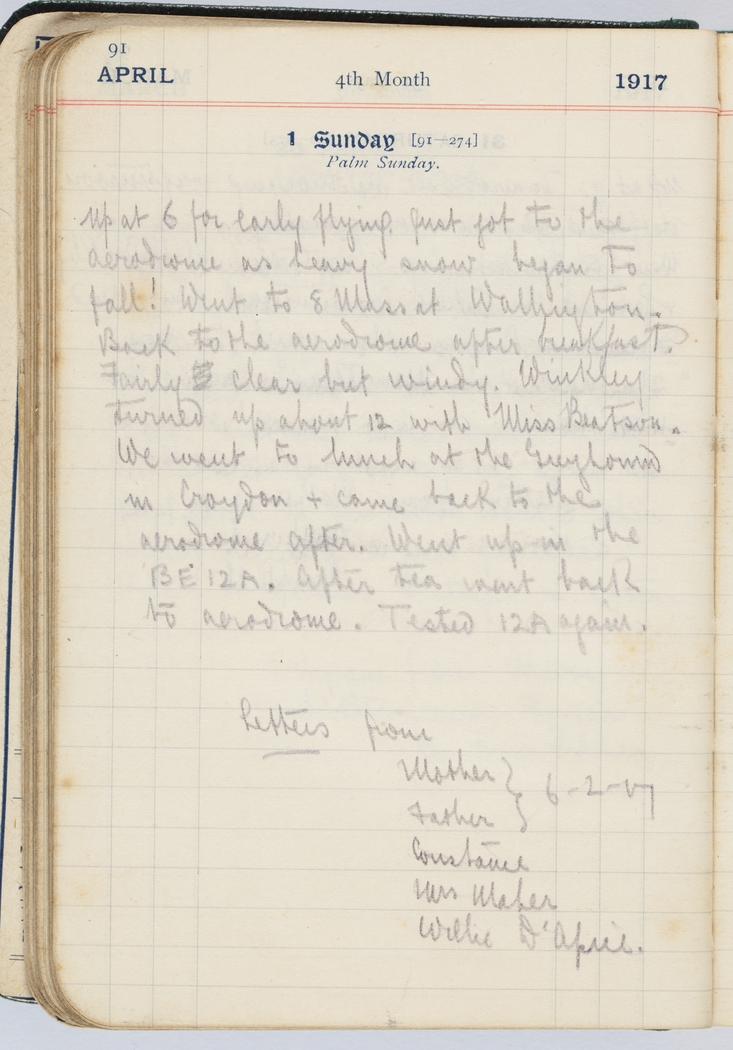 91
APRIL 4th Month 1917
1 Sunday [91—274]
Palm Sunday.
Up at 6 for early flying. Just got to the
aerodrome as heavy snow began to
fall! Went to 8 Mass at Wallington.
Back to the aerodrome after breakfast.
Fairly clear but windy. Winkley
turned up about 12 with Miss Beatson.
We went to lunch at the Greyhound
in Croydon + came back to the
aerodrome after. Went up in the
BE 12A. After tea went back
to aerodrome. Tested 12A again.
Letters from
Mother } 6-2-17
Father }
Constance
Mrs Maher
Willie D'Apice.